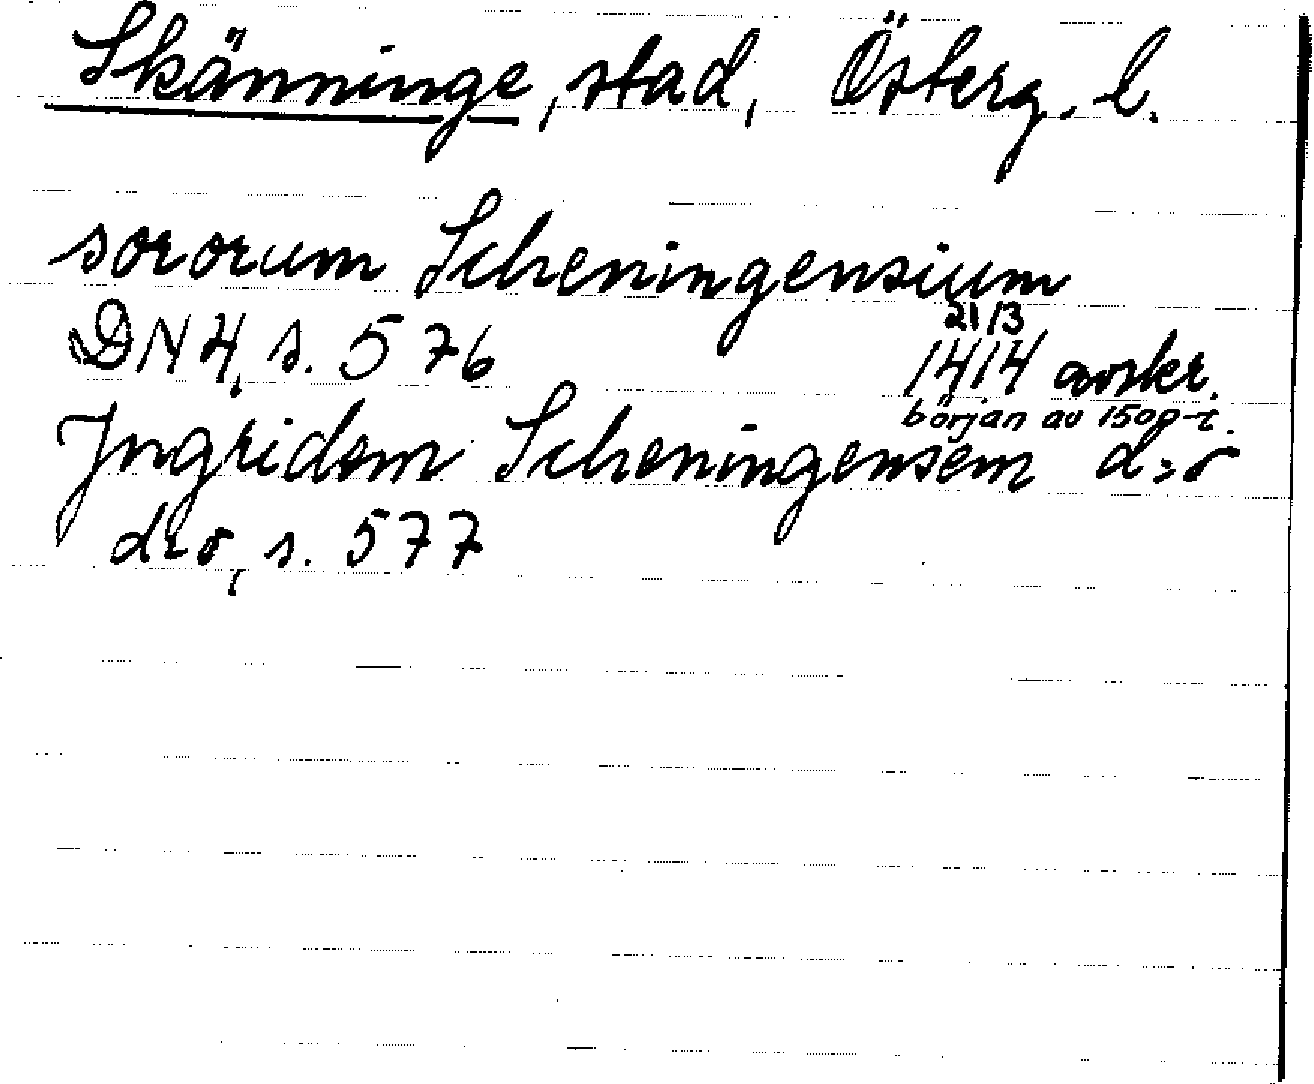 Skänninge, stad, Österg. l.
sororum Scheningensium
DN 4, s. 576 21/3 1414 avskr.
början av 1500-t.
Ingridem Scheningensem d:o
d:o, s. 577